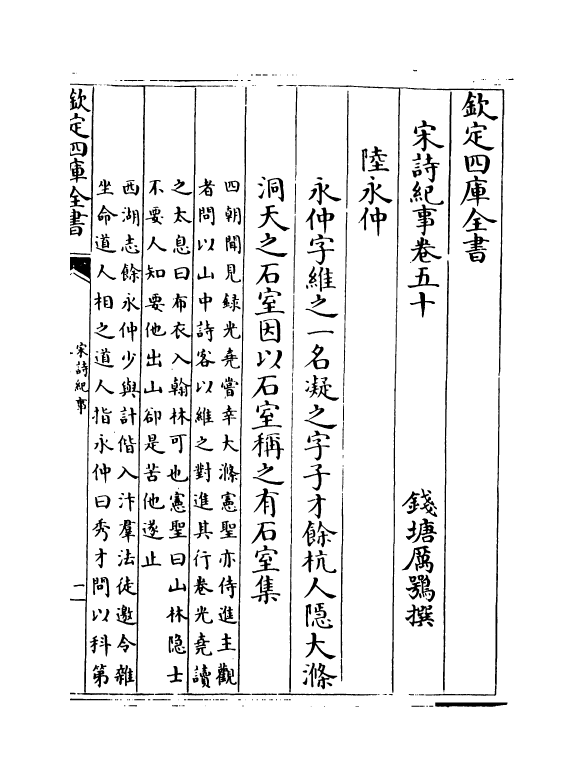 欽定四庫全書
宋詩紀事卷五十
錢塘厲鶚撰
陸永仲
永仲字維之一名凝之字子才餘杭人隱大滌
洞天之石室因以石室稱之有石室集
四朝聞見錄光堯嘗幸大滌憲聖亦侍進主觀
者問以山中詩客以維之對進其行卷光堯讀
之太息曰布衣入翰林可也憲聖曰山林隐士
不要人知要他出山卻是苦他遂止
西湖志餘永仲少與計偕入汴羣法徒邀令雜
坐命道人相之道人指永仲曰秀才問以科第
欽定四庫全書
宋詩紀事
一